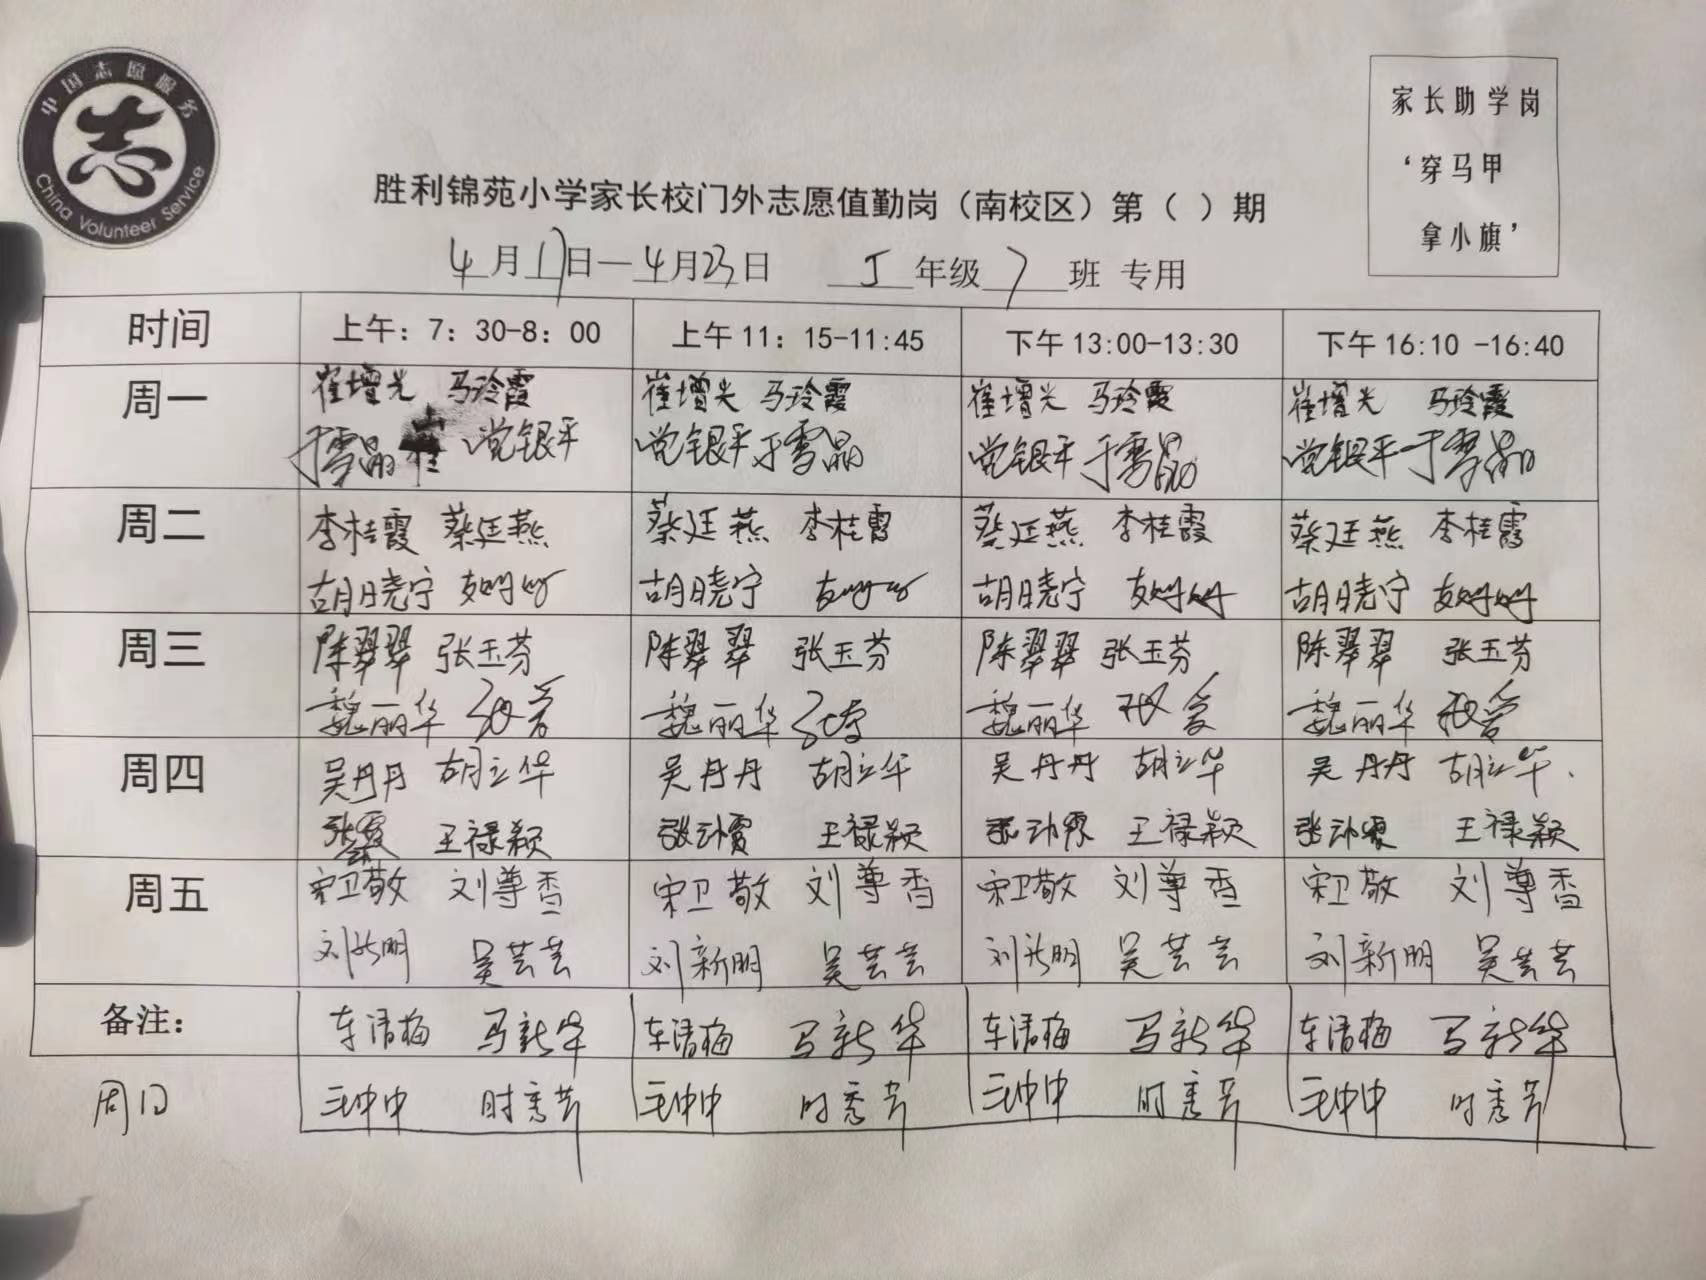 中国志愿服务
志
China Volunteer Service
家长助学岗
‘穿马甲
拿小旗’
胜利锦苑小学家长校门外志愿值勤岗（南校区）第（ ）期
4月17日—4月23日 5年级7班 专用
时间 上午：7：30-8：00 上午11：15-11:45 下午13:00-13:30 下午16:10 -16:40
周一 崔增光 马玲霞 崔增光 马玲霞 崔增光 马玲霞 崔增光 马玲霞
于雪晶 党银平 党银平 于雪晶 党银平 于雪晶 党银平 于雪晶
周二 李桂霞 蔡廷燕 蔡廷燕 李桂霞 蔡廷燕 李桂霞 蔡廷燕 李桂霞
胡晓宁 胡晓宁 胡晓宁 胡晓宁
周三 陈翠翠 张玉芬 陈翠翠 张玉芬 陈翠翠 张玉芬 陈翠翠 张玉芬
魏丽华 魏丽华 魏丽华 魏丽华
周四 吴丹丹 胡立华 吴丹丹 胡立华 吴丹丹 胡立华 吴丹丹 胡立华
王禄颖 王禄颖 王禄颖 王禄颖
周五 宋卫敬 刘尊香 宋卫敬 刘尊香 宋卫敬 刘尊香 宋卫敬 刘尊香
刘新明 吴芸芸 刘新明 吴芸芸 刘新明 吴芸芸 刘新明 吴芸芸
备注： 车清梅 马新华 车清梅 马新华 车清梅 马新华 车清梅 马新华
周日 王中中 时秀芳 王中中 时秀芳 王中中 时秀芳 王中中 时秀芳